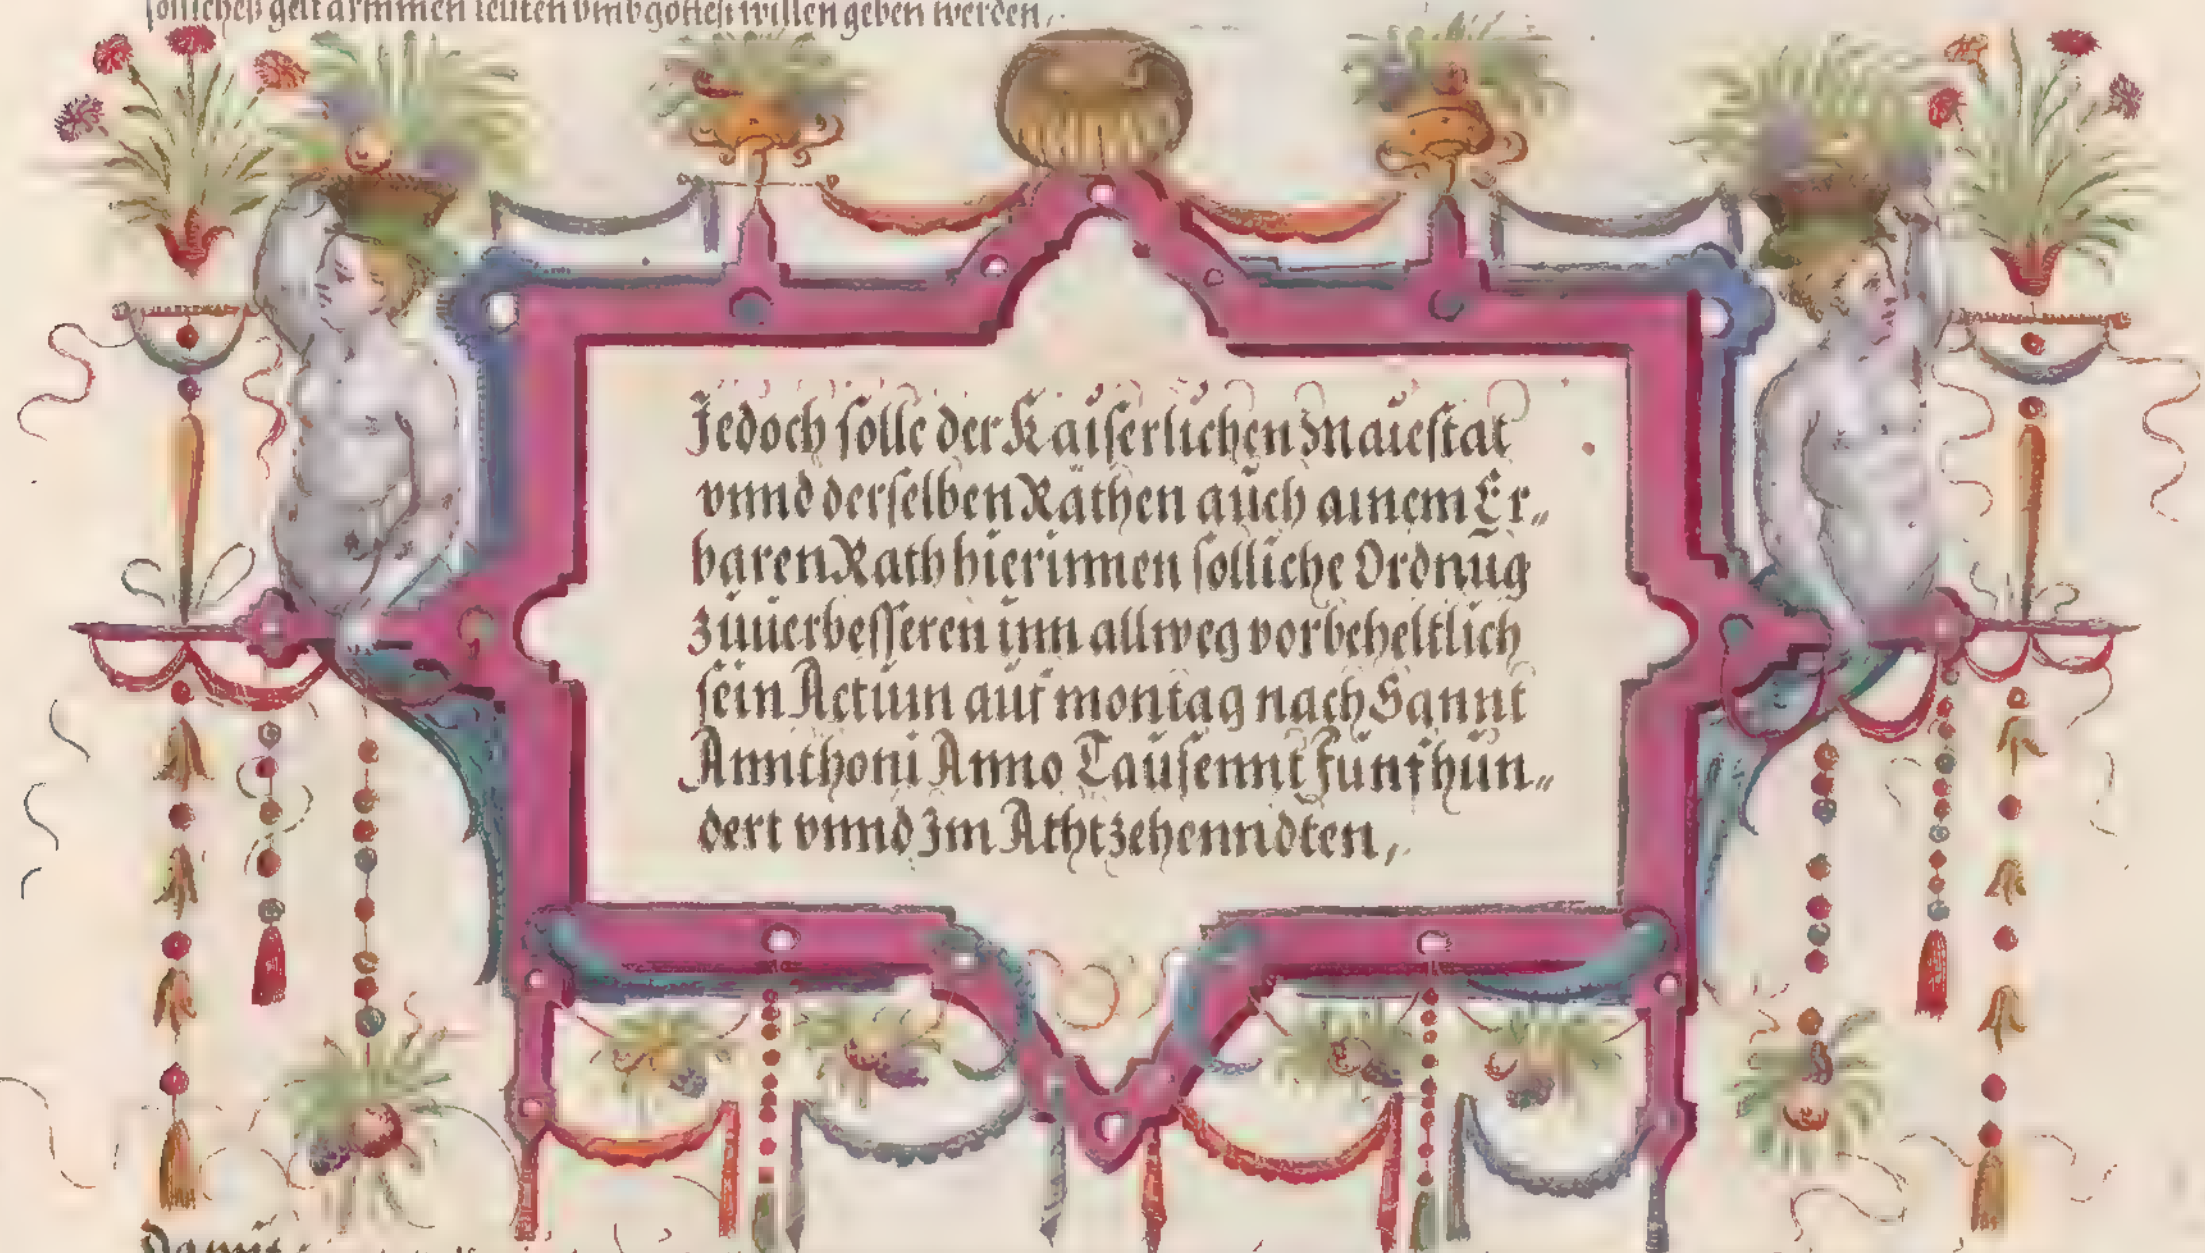 sölliches gelt armmen leuten vmb gottes willen geben werden,
Jedoch solle der Kaiserlichen Maiestat
vnnd derselben Räthen auch ainem Er„
baren Rath hierinnen solliche Ordnug
zuuerbesseren inn allweg vorbeheltlich
sein Actum auf montag nach Sannt
Annthoni Anno Tausennt Funfhun„
dert vnnd Im Athtzehenndten,